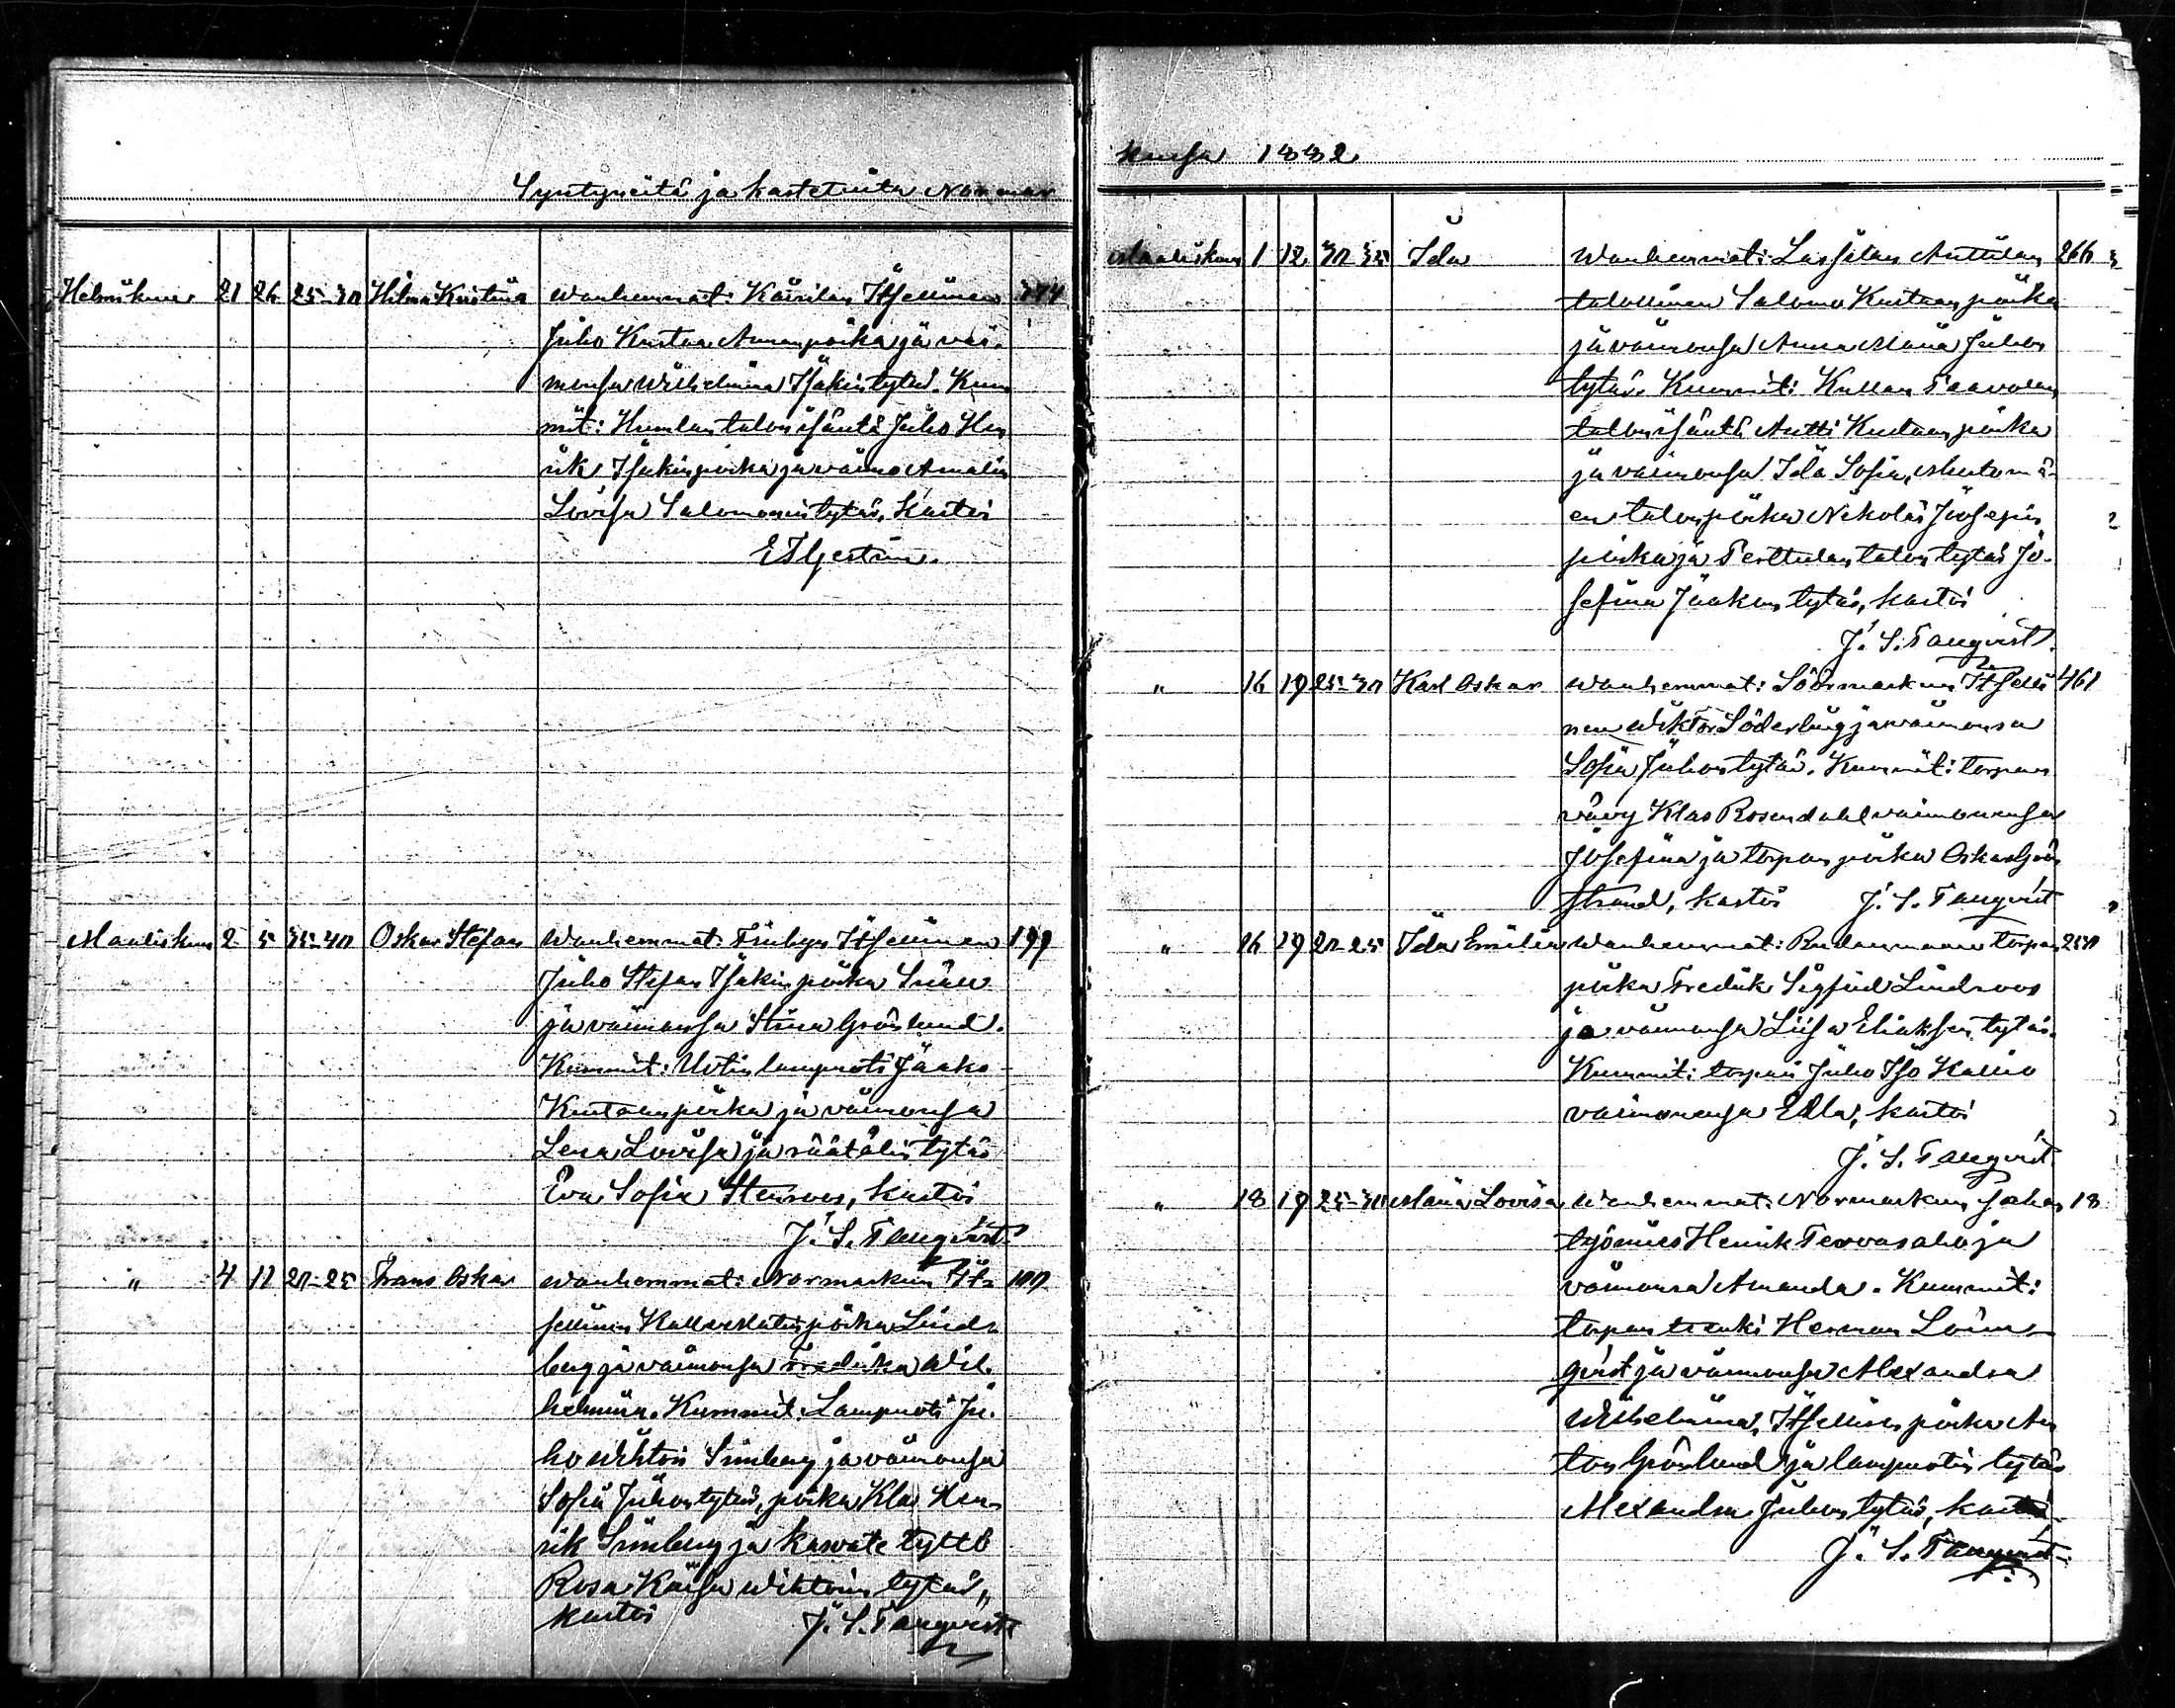 Syntyneitä ja kastetuita Normar
Helmikuu 21 26 25-30 Hilma Kristiina Wanhemmat: Kairilan Itsellinen 374
Juho Kustaa Annanpoika ja vai-
monsa Wilhelmina Isakintytär. Kum
mit: Humlan talon isäntä Juho Hen
rik Isakinpoika ja vaimo Amalia
Lovisa Salomonintytär, kastoi
Maaliskuu 2 5 35-40 Oskar Stefan Wanhemmat: Finbyn Itsellinen 199
Juho Stefan Isakinpoika
ja vaimonsa Stina Grönlund.
Kummit: lampuoti Jaako
Kustaanpoika ja vaimonsa
Lena Lovisa ja räätälin tytär
Eva Sofia Stenroos, kastoi
J. S. Tanqvist
" 4 12 20-25 Frans Oskar Wanhemmat: Normarkun It-
sellinen Kalle Matinpoika Lind-
berg ja vaimonsa Fredrika Wil-
helmina. Kummit: Lampuoti Ju-
ho Wihtori Simberg ja vaimonsa
Sofia Juhontytär, poika Klas Hen-
rik Simberg ja kasvate tyttö
Rosa Kaisa Wihtorin tytär,
kastoi J. S. Tanqvist
kussa 1882
Maaliskuu 1 12 30-35 Ida Wanhemmat: Lassilan Anttilan 266
talollinen Salomo Kustaanpoika
ja vaimonsa Anna Maria Juhon
tytär. Kummit: Kullan Paavolan
talon isäntä Antti Kustaanpoika
ja vaimonsa Ida Sofia,
en talonpoika Nikolai Joosepin
poika ja Perttulan talon tytär Jo-
sefina Jaakon tytär, kastoi
J. S. Tanqvist
" 16 19 25-30 Karl Oskar Wanhemmat: Söörmarkun Itselli 461
nen Wiktor Söderberg ja vaimonsa
Sofia Juhontytär. Kummit: torpan
vävy Klas Rosendahl vaimonensa
Josefina ja torpan poika Oskar Grön
strand, kastoi J. S. Tanqvist
" 16 19 20-25 Ida Emilia Wanhemmat: torpan 250
poika Fredrik Sigfrid Lindroos
ja vaimonsa Liisa Eliaksen tytär.
Kummit: torpari Juho Iso Kallio
vaimonensa Edla, kastoi
J. S. Tanqvist
" 18 19 25-30 Maria Lovisa Wanhemmat: Normarkun sahan 18
työmies Henrik Tervasalo ja
vaimonsa Amanda. Kummit:
torpan Herman Löun-
qvist ja vaimonsa Alexandra
Wilhelmina, Itsellisen poika An
ton Grönlund ja lampuotin tytär
Alexandra Juhon tytär, kastoi
J. S. Tanqvist